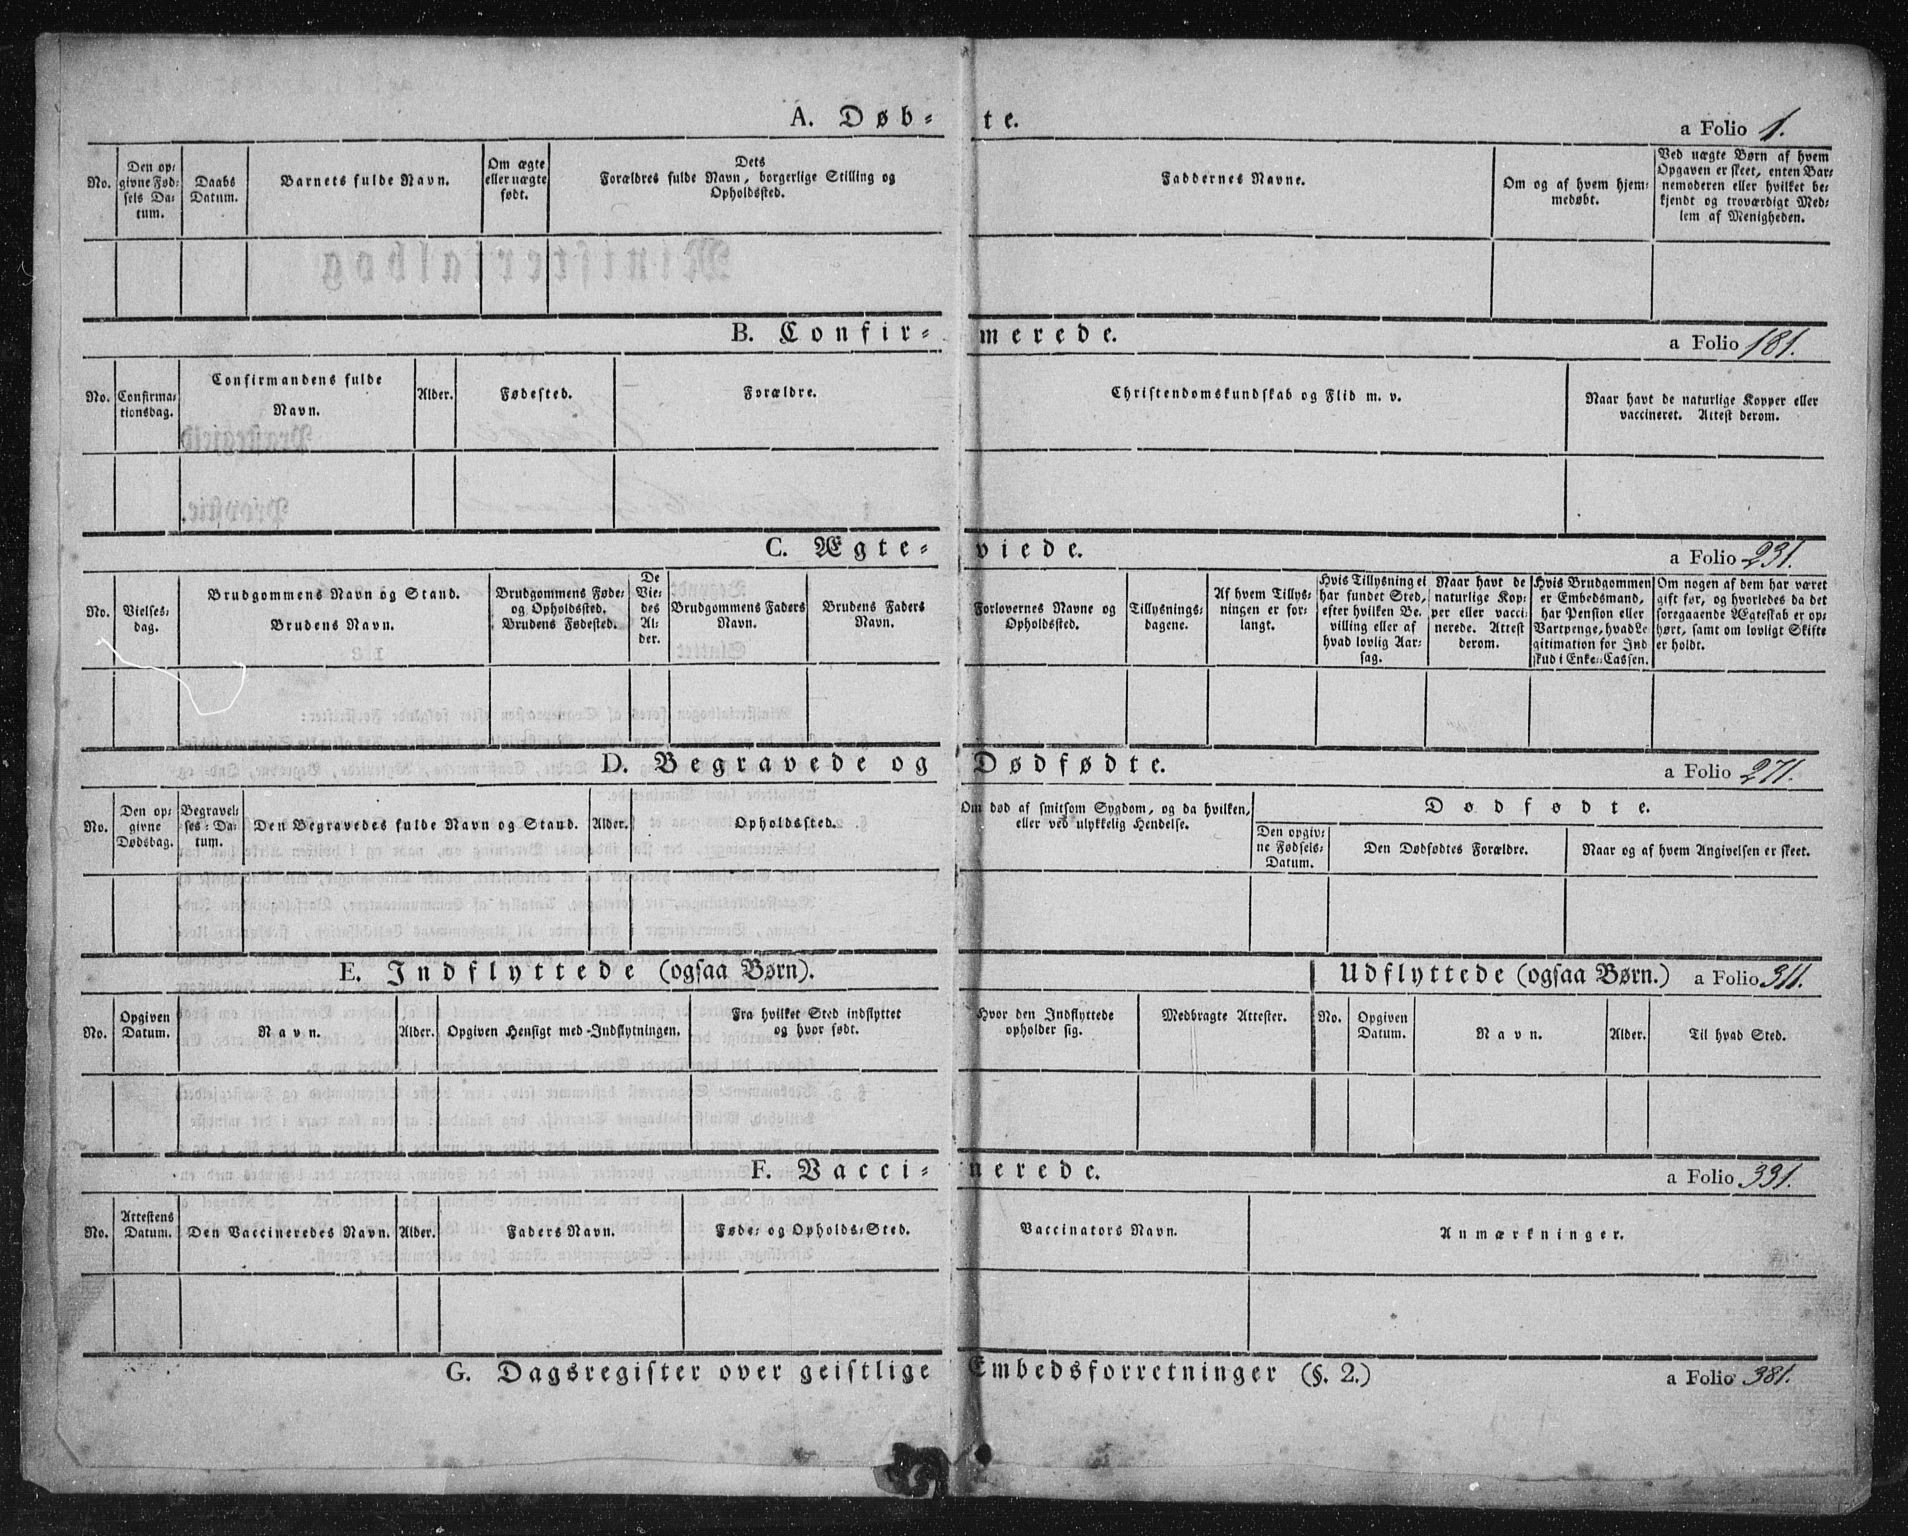 A. Døb- te.
a Folio 1.
No.
Den op-
givne Fød-
sels Da-
tum.
Daabs
Datum.
Barnets fulde Navn.
Om ægte
eller uægte
født.
Dets
Forældres fulde Navn, borgerlige Stilling og
Opholdssted.
Faddernes Navne.
Om og af hvem hjem-
medøbt.
Ved uægte Børn af hvem
Opgaven er skeet, enten Bar-
nemoderen eller hvilket be-
kjendt og troværdigt Med-
lem af Menigheden.
B. Confir- merede.
a Folio 181.
No.
Confirma-
tionsdag.
Confirmandens fulde
Navn.
Alder.
Fødested.
Forældre.
Christendomskundskab og Flid m. v.
Naar havt de naturlige Kopper eller
vaccineret. Attest derom.
C. Ægte- viede.
a Folio 231.
No.
Vielses-
dag.
Brudgommens Navn og Stand.
Brudens Navn.
Brudgommens Føde-
og Opholdssted.
Brudens Fødested.
De
Vie-
des
Al-
der.
Brudgommens Faders
Navn.
Brudens Faders
Navn.
Forlovernes Navne og
Opholdssted.
Tillysnings-
dagene.
Af hvem Tillys-
ningen er for-
langt.
Hvis Tillysning ei
har fundet Sted,
efter hvilken Be-
villing eller af
hvad lovlig Aar-
sag.
Naar havt de
naturlige Kop-
per eller vacci-
nerede. Attest
derom.
Hvis Brudgommen
er Embedsmand,
har Pension eller
Vartpenge, hvad Le-
gitimation for Ind-
skud i Enke-Cassen.
Om nogen af dem har været
gift før, og hvorledes da det
foregaaende Ægteskab er op-
hørt, samt om lovligt Skifte
er holdt.
D. Begravede og Dødfødte.
a Folio 271.
No.
Den op-
givne
Dødsdag.
Begravel-
ses-Da-
tum.
Den Begravedes fulde Navn og Stand.
Alder.
Opholdssted.
Om død af smitsom Sygdom, og da hvilken,
eller ved ulykkelig Hendelse.
Dødfødte.
Den opgiv-
ne Fødsels-
Datum.
Den Dødfødtes Forældre.
Naar og af hvem Angivelsen er skeet.
E. Indflyttede (ogsaa Børn).
Udflyttede (ogsaa Børn.) a Folio 311.
No.
Opgiven
Datum.
Navn.
Alder.
Opgiven Hensigt med Indflytningen.
Fra hvilket Sted indflyttet
og hvor født.
Hvor den Indflyttede
opholder sig.
Medbragte Attester.
No.
Opgiven
Datum.
Navn.
Alder.
Til hvad Sted.
F. Vacci- nerede.
a Folio 331.
No.
Attestens
Datum.
Den Vaccineredes Navn.
Alder.
Faders Navn.
Føde- og Opholds-Sted.
Vaccinators Navn.
Anmærkninger.
G. Dagsregister over geistlige Embedsforretninger (§. 2.)
a Folio 381.